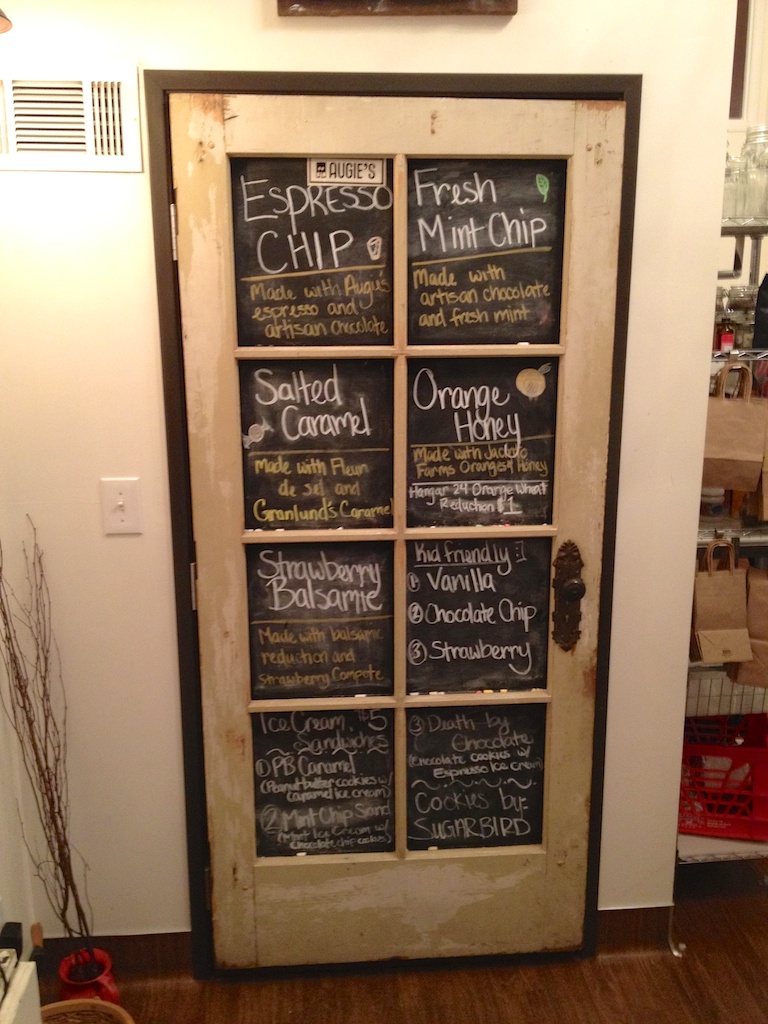 AUGIE'S
ESPRESSO
CHIP
Made with Augie's
espresso and
artisan chocolate
Fresh
Mint Chip
Made with
artisan chocolate
and fresh mint
Salted
Caramel
Made with Fleur
de sel and
Granlund's Caramel
Orange
Honey
Made with
Farms Oranges & Honey
Hangar 24 Orange Wheat
Reduction $1
Strawberry
Balsamic
Made with balsamic
reduction and
strawberry Compote
Kid friendly :]
① Vanilla
② Chocolate Chip
③ Strawberry
Ice Cream $5
Sandwiches
① PB Caramel
(Peanut butter cookies w/
caramel ice cream)
② Mint Chip Sand
(Mint Ice Cream w/
chocolate chip cookies)
③ Death by
Chocolate
(Chocolate cookies w/
Espresso Ice cream)
Cookies by:
SUGARBIRD